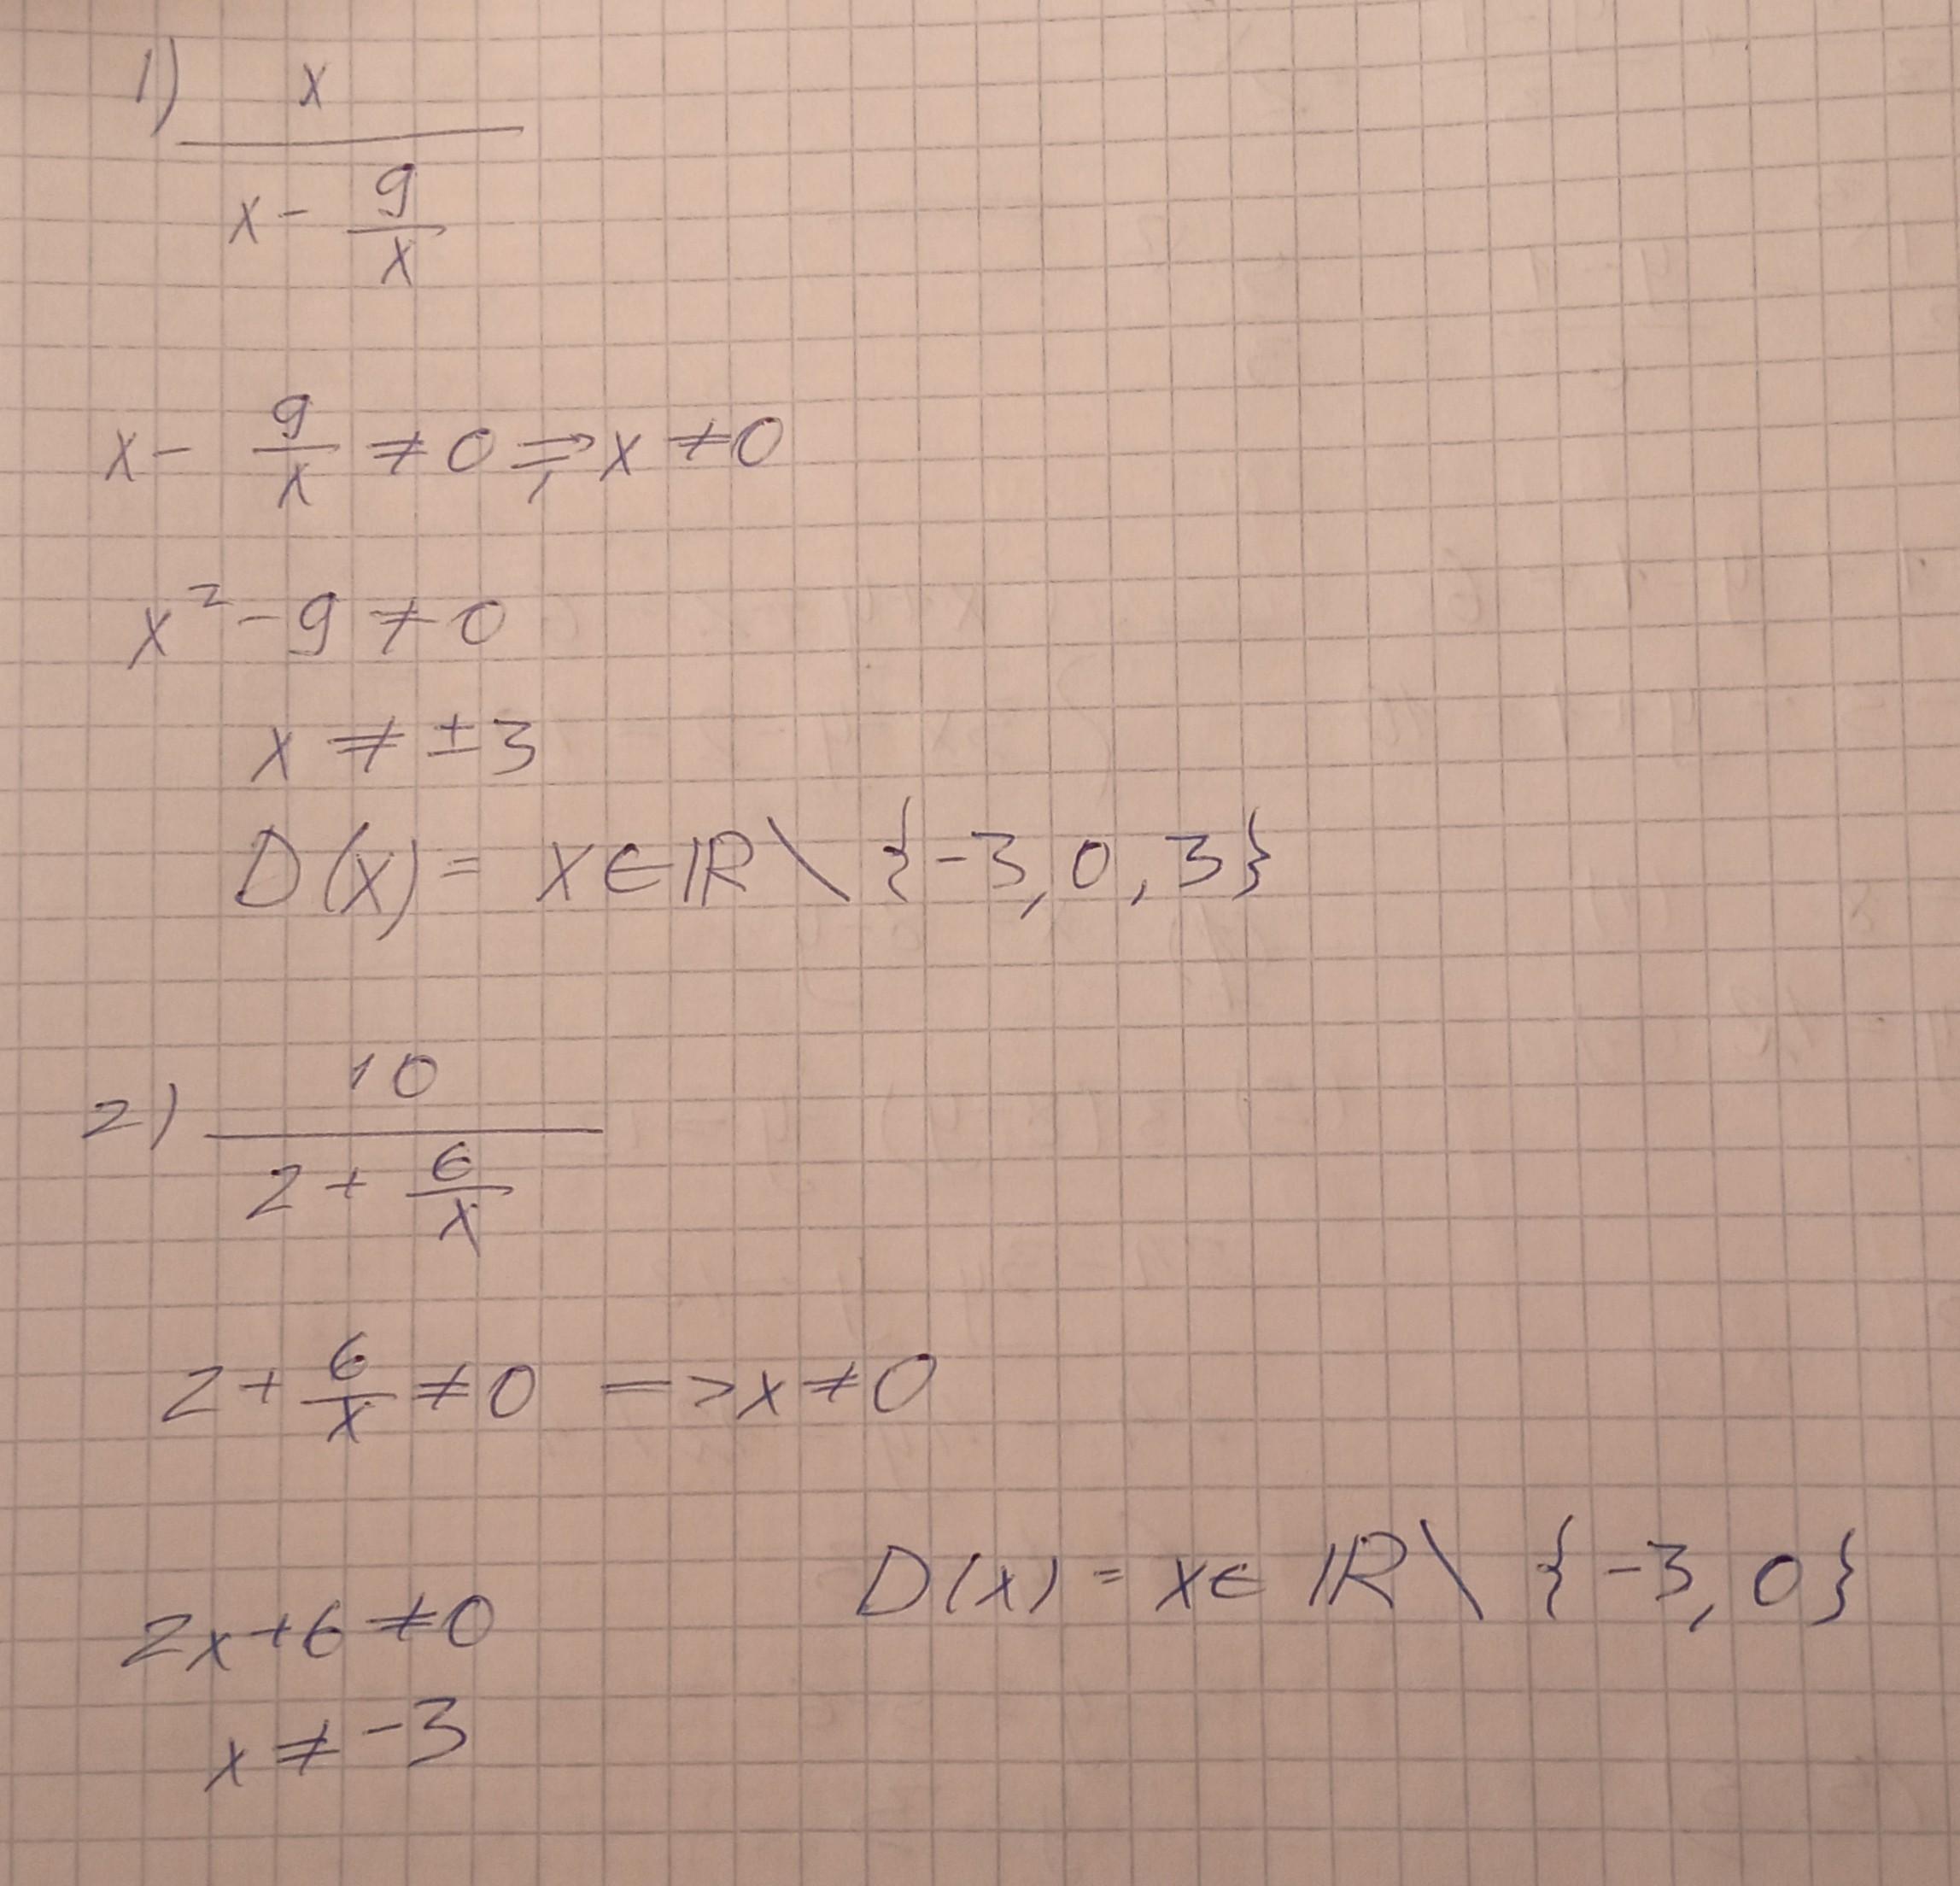 1) x
x - 9/x
x - 9/x ≠ 0 => x ≠ 0
x² - 9 ≠ 0
x ≠ ±3
D(x) = x ∈ ℝ \ {-3, 0, 3}
2) 10
2 + 6/x
2 + 6/x ≠ 0 => x ≠ 0
D(x) = x ∈ ℝ \ {-3, 0}
2x + 6 ≠ 0
x ≠ -3